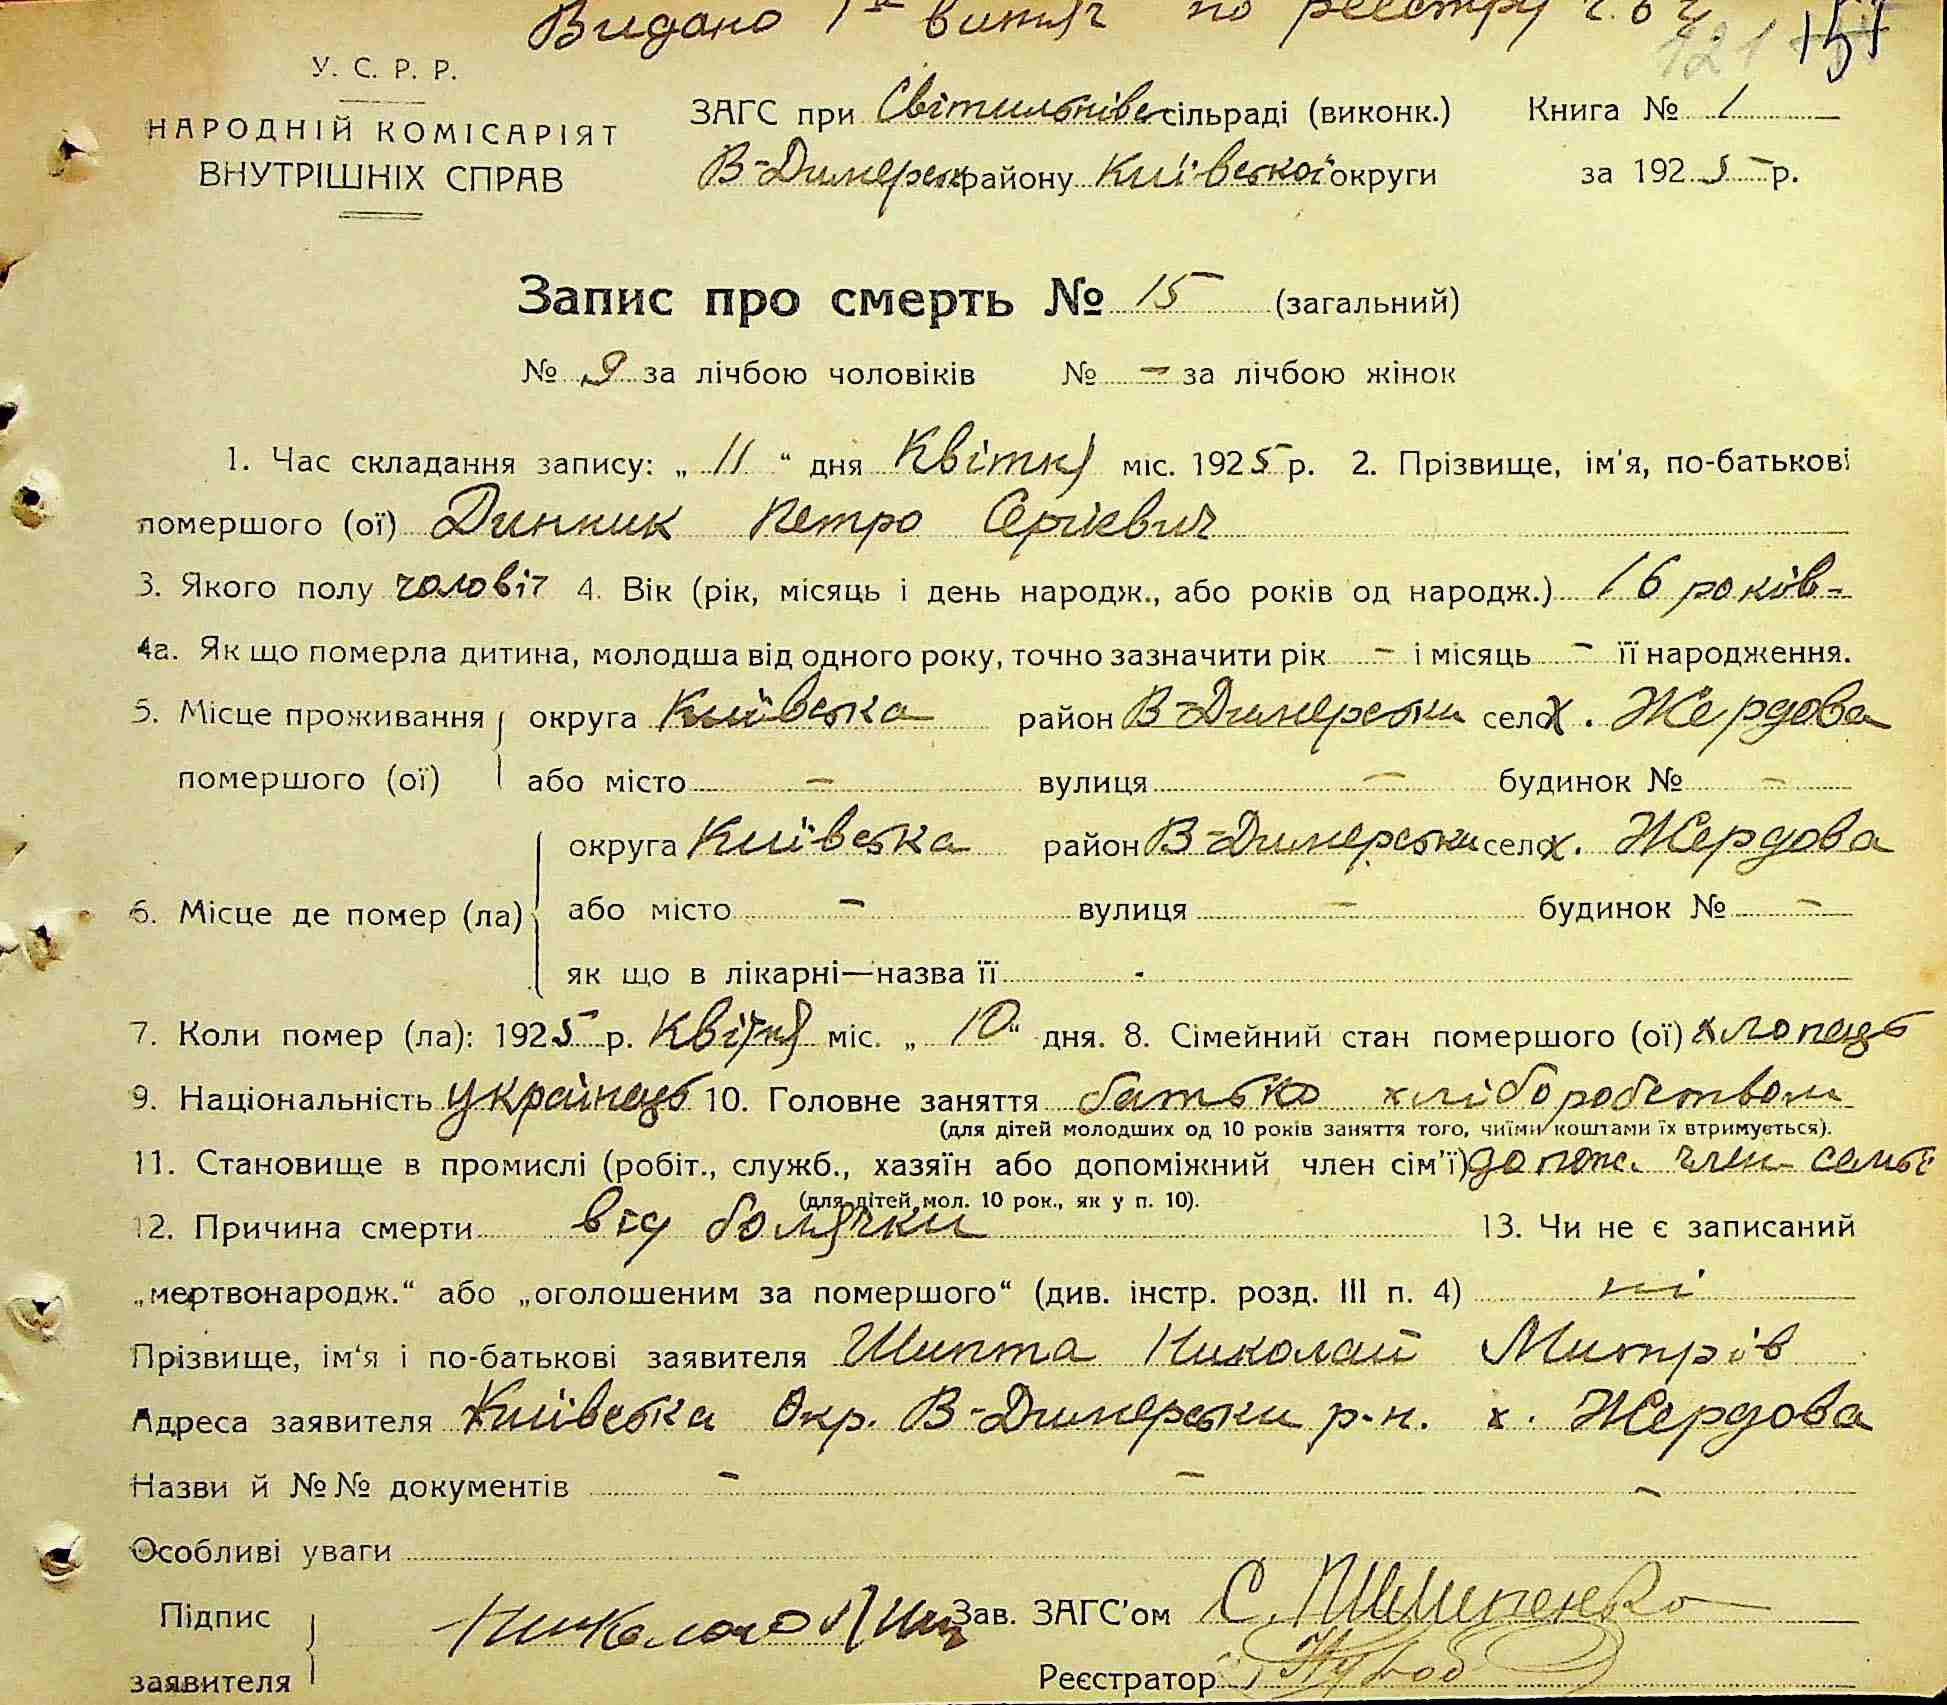 Видано 1й витяг по реєстру ч. 6
121 151
У. С. Р. Р.
НАРОДНІЙ КОМІСАРІЯТ
ВНУТРІШНІХ СПРАВ
ЗАГС при Світильнівс сільраді (виконк.) Книга № 1
В-Димерськ району Київської округи за 1925 р.
Запис про смерть № 15 (загальний)
№ 9 за лічбою чоловіків № - за лічбою жінок
1. Час складання запису: „ 11 “ дня Квітня міс. 1925 р. 2. Прізвище, ім'я, по-батькові
помершого (ої) Динник Петро Сергієвич
3. Якого полу чоловіч 4. Вік (рік, місяць і день народж., або років од народж.) 16 років -
4а. Як що померла дитина, молодша від одного року, точно зазначити рік - і місяць - її народження.
5. Місце проживання округа Київська район В-Димерськи село х. Жердова
помершого (ої) або місто - вулиця - будинок № -
округа Київська район В-Димерськи село х. Жердова
6. Місце де помер (ла) або місто - вулиця - будинок № -
як що в лікарні—назва її -
7. Коли помер (ла): 1925 р. Квітня міс. „ 10 “ дня. 8. Сімейний стан помершого (ої) хлопець
9. Національність українець 10. Головне заняття батько хліборобством
(для дітей молодших од 10 років заняття того, чиїми коштами їх втримується).
11. Становище в промислі (робіт., служб., хазяїн або допоміжний член сім'ї) допож. член семьї
(для дітей мол. 10 рок., як у п. 10).
12. Причина смерти від болячки 13. Чи не є записаний
„мертвонародж.“ або „оголошеним за помершого“ (див. інстр. розд. III п. 4) ні
Прізвище, ім'я і по-батькові заявителя Шипта Николай Митрів
Адреса заявителя Київська Окр. В-Димерськи р-н. х. Жердова
Назви й №№ документів - - -
Особливі уваги
Підпис Николаю Зав. ЗАГС'ом
заявителя Реєстратор